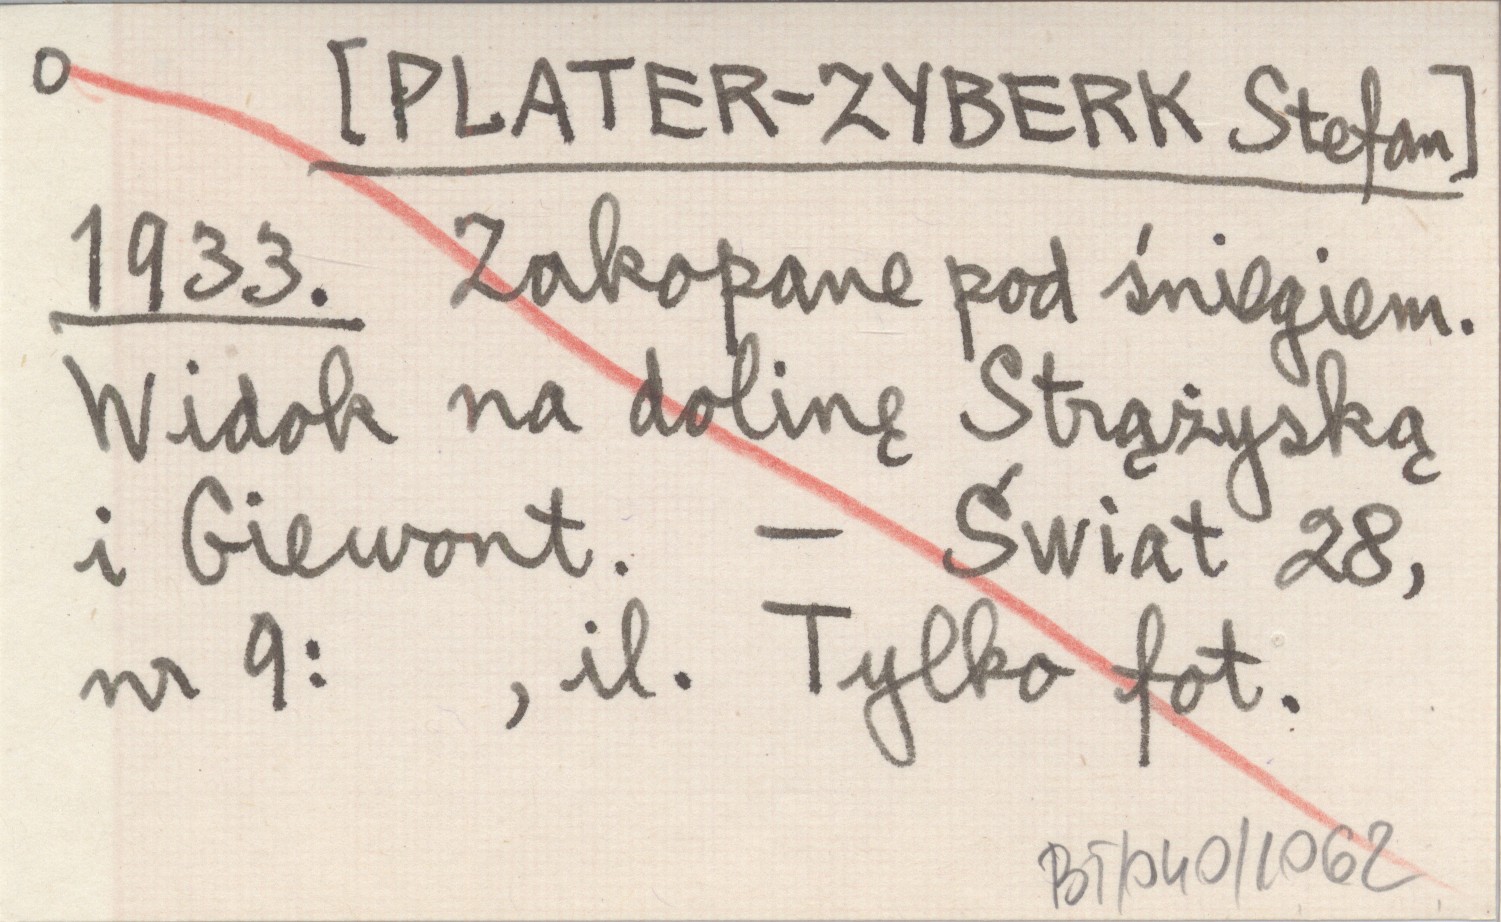 o [PLATER-ZYBERK Stefan]
1933. Zakopane pod śniegiem.
Widok na dolinę Strążyską
i Giewont. — Świat 28,
nr 9: , il. Tylko fot.
BT/040/1062